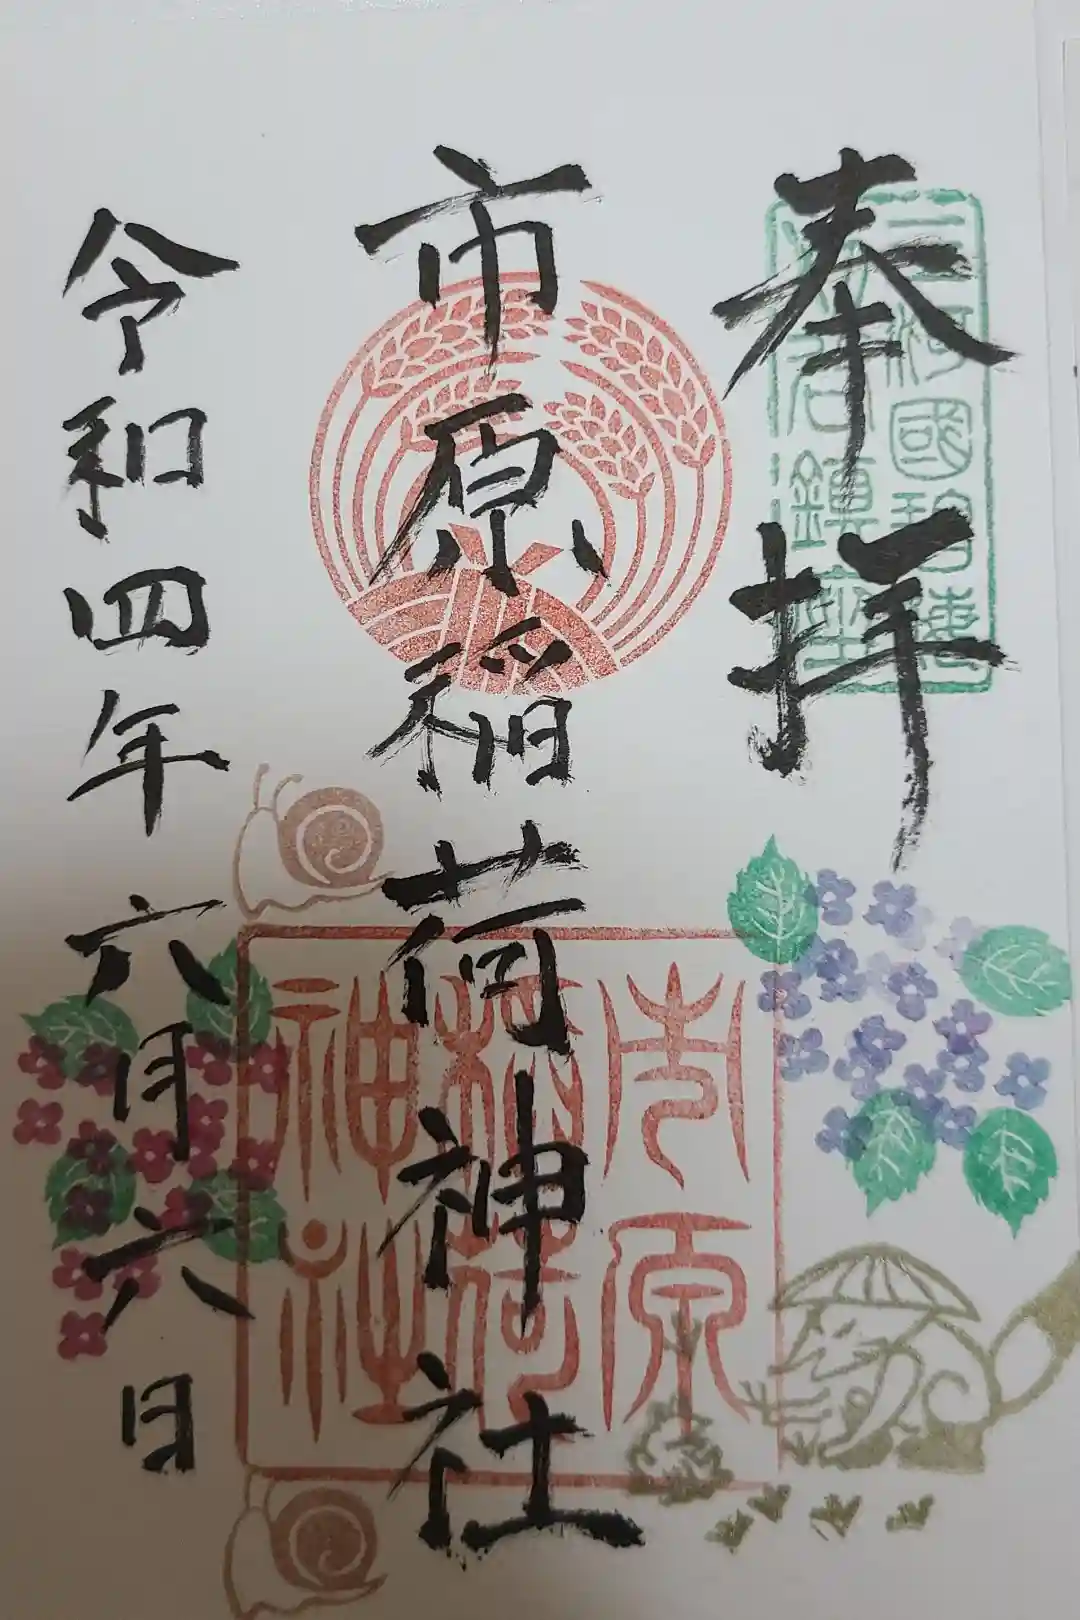 奉拝
三河國碧海
市原稲荷神社
市原
稲荷
神社
令和四年六月六日